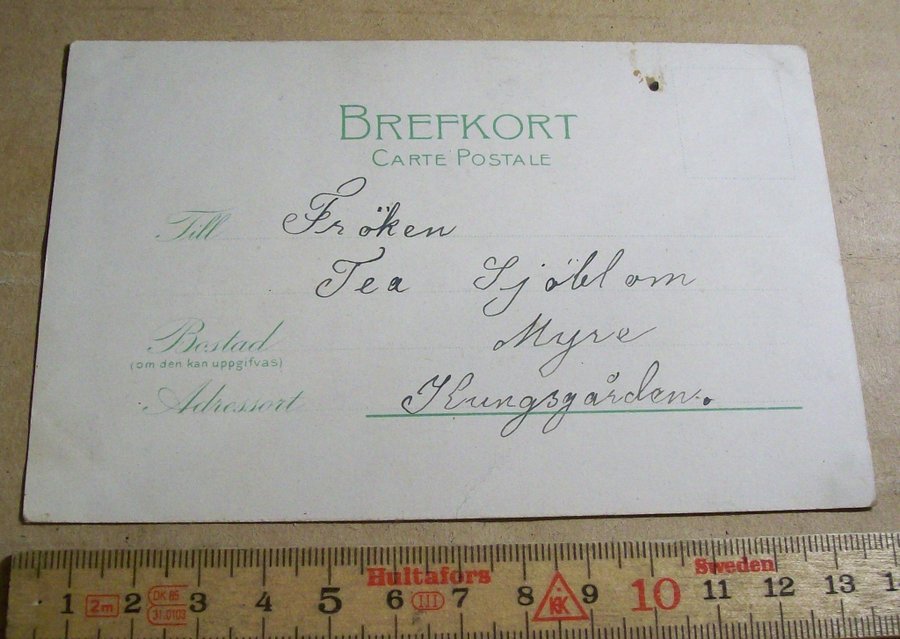 BREFKORT
CARTE POSTALE
Till Fröken
Tea Sjöblom
Bostad Myre
(om den kan uppgifvas)
Adressort Kungsgården.
Hultafors Sweden
1 2m 2 DK 85 31.0103 3 4 5 6 III 7 8 KK 9 10 11 12 13 14